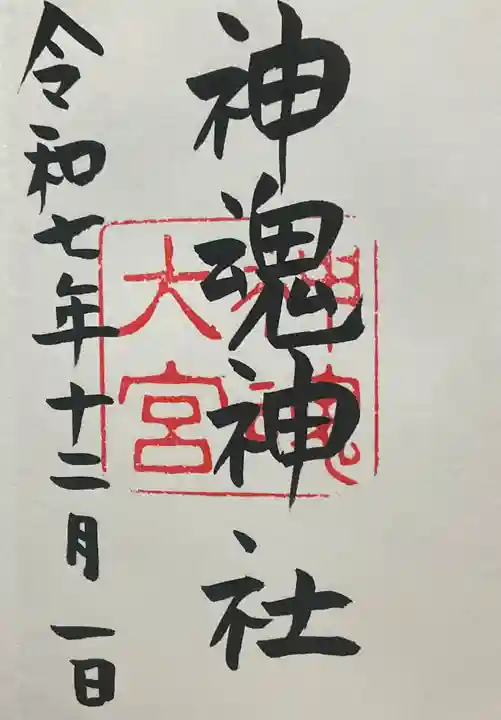 神魂神社
神魂
大宮
令和七年十二月一日